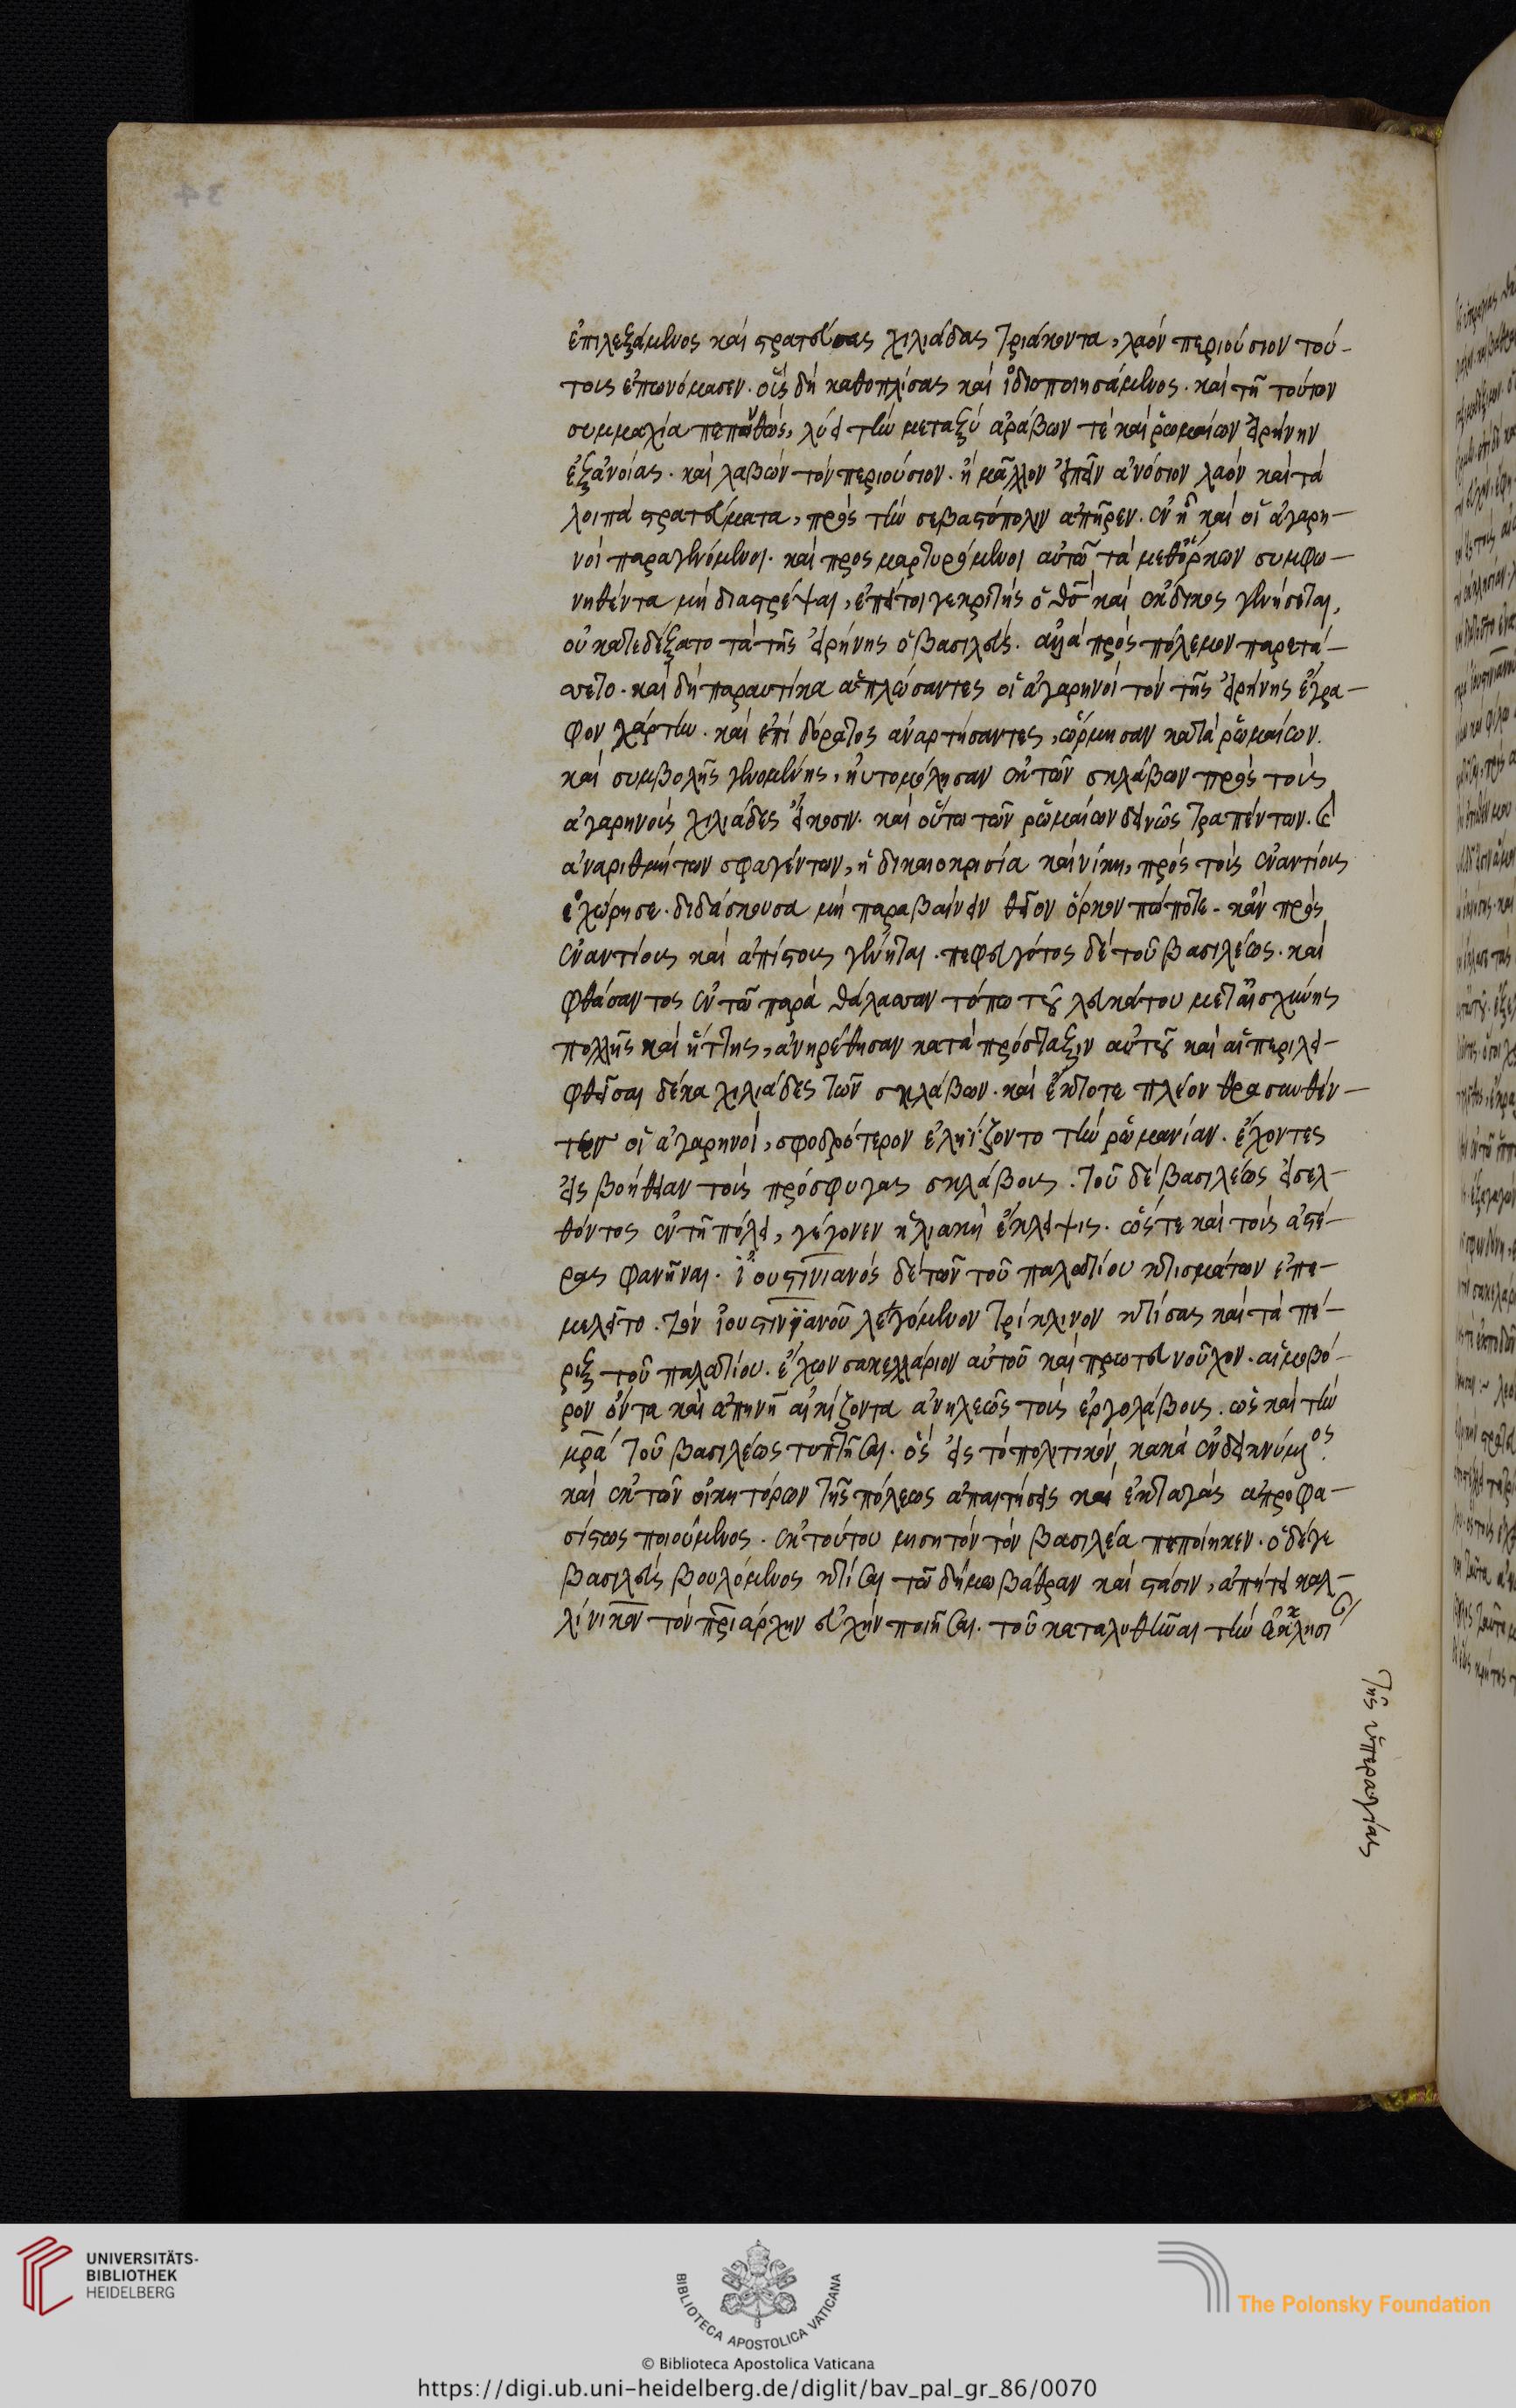 ἐπιλεξάμενος καὶ στρατεύσας χιλιάδας τριάκοντα, λαὸν περιούσιον τού-
τοις ἐπωνόμασεν. οὓς δὴ καθοπλίσας καὶ ἰδιοποιησάμενος. καὶ τῆ τούτων
συμμαχία πεποιθὼς, λύει τὴν μεταξὺ ἀράβων τὲ καὶ ῥωμαίων εἰρήνην
ἐξανοίας. καὶ λαβὼν τὸν περιούσιον. ἢ μᾶλλον εἰπεῖν ἀνόσιον λαὸν καὶ τὰ
λοιπὰ στρατεύματα, πρὸς τὴν σεβαστόπολιν ἀπῆρεν. ἐν ἧ καὶ οἱ ἀγαρη-
νοὶ παραγενόμενοι. καὶ προς μαρτυρόμενοι αὐτῶ τὰ μεθόρκων συμφω-
νηθέντα μὴ διαστρέψαι, ἐπείτοιγε κριτὴς ὁ θσ καὶ ἔκδικος γενήσεται,
οὐ κατεδέξατο τὰ τῆς εἰρήνης ὁ βασιλεύς. ἀλλὰ πρὸς πόλεμον παρετά-
σσετο. καὶ δὴ παραυτίκα ἁπλώσαντες οἱ ἀγαρηνοὶ τὸν τῆς εἰρήνης ἔγρα-
φον χάρτην. καὶ ἐπὶ δόρατος ἀναρτήσαντες, ὥρμησαν κατὰ ῥωμαίων.
καὶ συμβολῆς γενομένης, ηὐτομόλησαν ἐκ τῶν σκλάβων πρὸς τοὺς
ἀγαρηνοὺς χιλιάδες εἴκοσιν. καὶ οὕτω τῶν ῥωμαίων δεινῶς τραπέντων. καὶ
ἀναριθμήτων σφαγέντων, ἡ δικαιοκρισία καὶ νίκη, πρὸς τοὺς ἐναντίους
ἐχώρησε. διδάσκουσα μὴ παραβαίνειν θεῖον ὅρκον πώποτε. κἂν πρὸς
ἐναντίους καὶ ἀπίστους γένηται. πεφευγότος δὲ τοῦ βασιλέως. καὶ
φθάσαντος ἐν τῶ παρὰ θάλασσαν τόπω τοῦ λευκάτου μετ αἰσχύνης
πολλῆς καὶ ἥττης, ἀνηρέθησαν κατὰ πρόσταξιν αὐτοῦ καὶ αἱ περιλει-
φθεῖσαι δέκα χιλιάδες τῶν σκλάβων. καὶ ἔκτοτε πλέον θρασυνθέν-
των οἱ ἀγαρηνοὶ, σφοδρότερον ἐληΐζοντο τὴν ῥωμανίαν. ἔχοντες
εἰς βοήθειαν τοὺς πρόσφυγας σκλάβους. τοῦ δὲ βασιλέως εἰσελ-
θόντος ἐν τῆ πόλει, γέγονεν ἡλιακὴ ἔκλειψις. ὥστε καὶ τοὺς ἀστέ-
ρας φανῆναι. ἰουστινιανὸς δὲ τῶν τοῦ παλατίου κτισμάτων ἐπε-
μελεῖτο. τὸν ἰουστινϊανοῦ λεγόμενον τρίκλινον κτίσας καὶ τὰ πέ-
ριξ τοῦ παλατίου. ἔχων σακελλάριον αὐτοῦ καὶ πρωτευνοῦχον. αἱμοβό-
ρον ὄντα καὶ ἀπηνῆ αἰκίζοντα ἀνηλεῶς τοὺς ἐργολάβους. ὡς καὶ τὴν
μρα τοῦ βασιλέως τυπτῆσαι. ὃς εἰς τὸ πολιτικὸν κακὰ ἐνδεικνύμενος.
καὶ ἐκ τῶν οἰκητόρων τῆς πόλεως ἀπαιτήσεις καὶ ἐκταγὰς ἀπροφα-
σίστως ποιούμενος. ἐκ τούτου μισητὸν τὸν βασιλέα πεποίηκεν. ὁ δέ γε
βασιλεὺς βουλόμενος κτίσαι τῶ δήμω βάθραν καὶ στάσιν, ἀπήτει καλ-
λίνικον τὸν πριάρχην εὐχὴν ποιῆσαι. τοῦ καταλυθῆναι τὴν ἐκκλησί
τῆς ὑπεραγίας
UNIVERSITÄTS-
BIBLIOTHEK
HEIDELBERG
BIBLIOTECA APOSTOLICA VATICANA
The Polonsky Foundation
© Biblioteca Apostolica Vaticana
https://digi.ub.uni-heidelberg.de/diglit/bav_pal_gr_86/0070